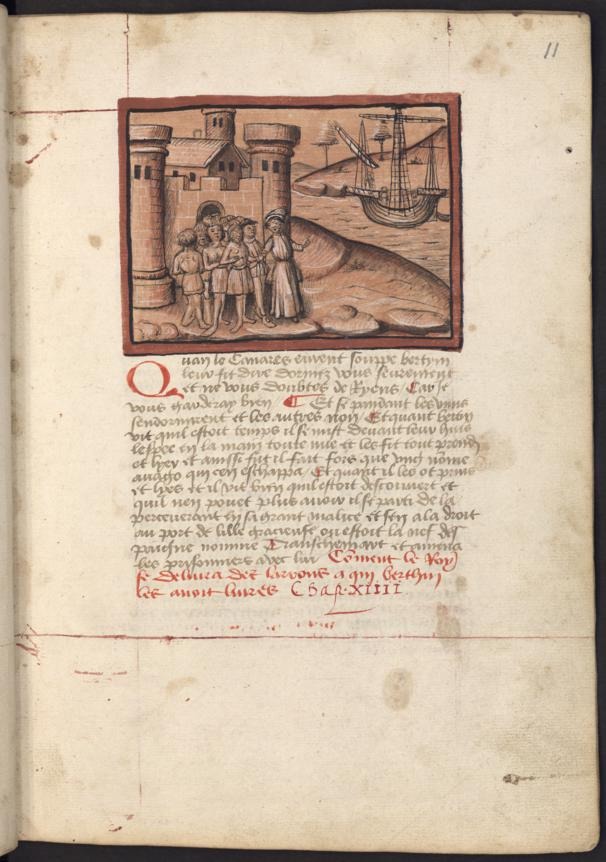 11
Quan le Canares eurent souppe bertyn
leur fit dire dormez vous seurement
et ne vous doubtes de Ryens Car Je
vous garderay bien Et se pendant les ungs
sendormirent et les autres non Et quant bertin
vit quil estoit temps il se mist devant leur huis
lespee en la main toute nue et les fit tout prendre
et lyer et ainsse fut il fait fors que ung nome
avago qui cen eschappa Et quant il les ot prins
et lyes et il vit bien quil estoit descouvert et
quil nen pouet plus avoir il se parti de la
perceverant en sa grant malice et sen ala droit
au port de lille gracieuse ou estoit la nef des
paigne nomme Tranchemare et amena
les prisonniers avec lui Coment le Roy
se delivra des larrons a qui berthin
les avoit livres Chap. XIIII